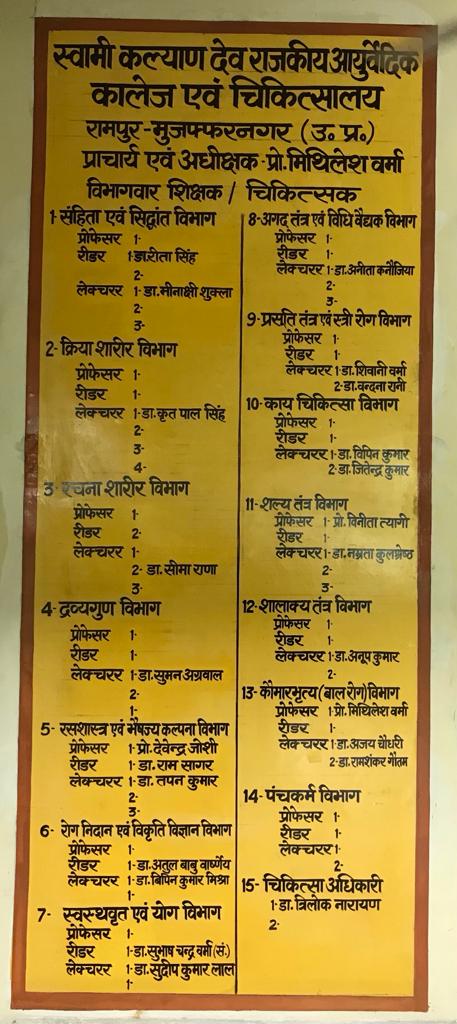 स्वामी कल्याण देव राजकीय आयुर्वेदिक
कालेज एवं चिकित्सालय
रामपुर-मुजफ्फरनगर (उ. प्र.)
प्राचार्य एवं अधीक्षक-प्रो. मिथिलेश वर्मा
विभागवार शिक्षक / चिकित्सक
1-संहिता एवं सिद्धांत विभाग
प्रोफेसर 1-
रीडर 1-डा.रीता सिंह
2-
लेक्चरर 1-डा.मीनाक्षी शुक्ला
2-
3-
2- क्रिया शारीर विभाग
प्रोफेसर 1-
रीडर 1-
लेक्चरर 1-डा.कृत पाल सिंह
2-
3-
4-
3- रचना शारीर विभाग
प्रोफेसर 1-
रीडर 2-
लेक्चरर 1-
2- डा.सीमा राणा
3-
4- द्रव्यगुण विभाग
प्रोफेसर 1-
रीडर 1-
लेक्चरर 1-डा.सुमन अग्रवाल
2-
1-
5- रसशास्त्र एवं भैषज्य कल्पना विभाग
प्रोफेसर 1-प्रो.देवेन्द्र जोशी
रीडर 1-डा.राम सागर
लेक्चरर 1-डा.तपन कुमार
2-
3-
6- रोग निदान एवं विकृति विज्ञान विभाग
प्रोफेसर 1-
रीडर 1-डा.अतुल बाबु वार्ष्णेय
लेक्चरर 1-डा.बिपिन कुमार मिश्रा
1-
7- स्वस्थवृत एवं योग विभाग
प्रोफेसर 1-
रीडर 1-डा.सुभाष चन्द्र वर्मा(सं.)
लेक्चरर 1-डा.सुदीप कुमार लाल
1-
8-अगद तंत्र एवं विधि वैद्यक विभाग
प्रोफेसर 1-
रीडर 1-
लेक्चरर 1-डा.अनीता कनौजिया
2-
3-
9-प्रसुति तंत्र एवं स्त्री रोग विभाग
प्रोफेसर 1-
रीडर 1-
लेक्चरर 1-डा.शिवानी वर्मा
2-डा.वन्दना रानी
10-काय चिकित्सा विभाग
प्रोफेसर 1-
रीडर 1-
लेक्चरर 1-डा.विपिन कुमार
2-डा.जितेन्द्र कुमार
11-शल्य तंत्र विभाग
प्रोफेसर 1-प्रो.विनीता त्यागी
रीडर 1-
लेक्चरर 1-डा.नम्रता कुलश्रेष्ठ
2-
3-
12-शालाक्य तंत्र विभाग
प्रोफेसर 1-
रीडर 1-
लेक्चरर 1-डा.अनूप कुमार
2-
13-कौमारभृत्य(बाल रोग)विभाग
प्रोफेसर 1-प्रो.मिथिलेश वर्मा
रीडर 1-
लेक्चरर 1-डा.अजय चौधरी
2-डा.रामशंकर गौतम
14-पंचकर्म विभाग
प्रोफेसर 1-
रीडर 1-
लेक्चरर 1-
2-
15- चिकित्सा अधिकारी
1-डा.त्रिलोक नारायण
2-